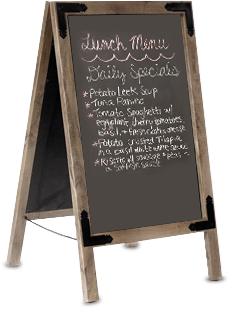 Lunch Menu
Daily Specials
*Potato Leek Soup
*Tuna Panino
*Tomato Spaghetti w/
eggplant, cherry tomatoes,
basil, + fresh goat cheese
*Potato crusted Tilapia
in a basil white wine sauce
*Risotto w/ sausage + peas in
a saffron sauce